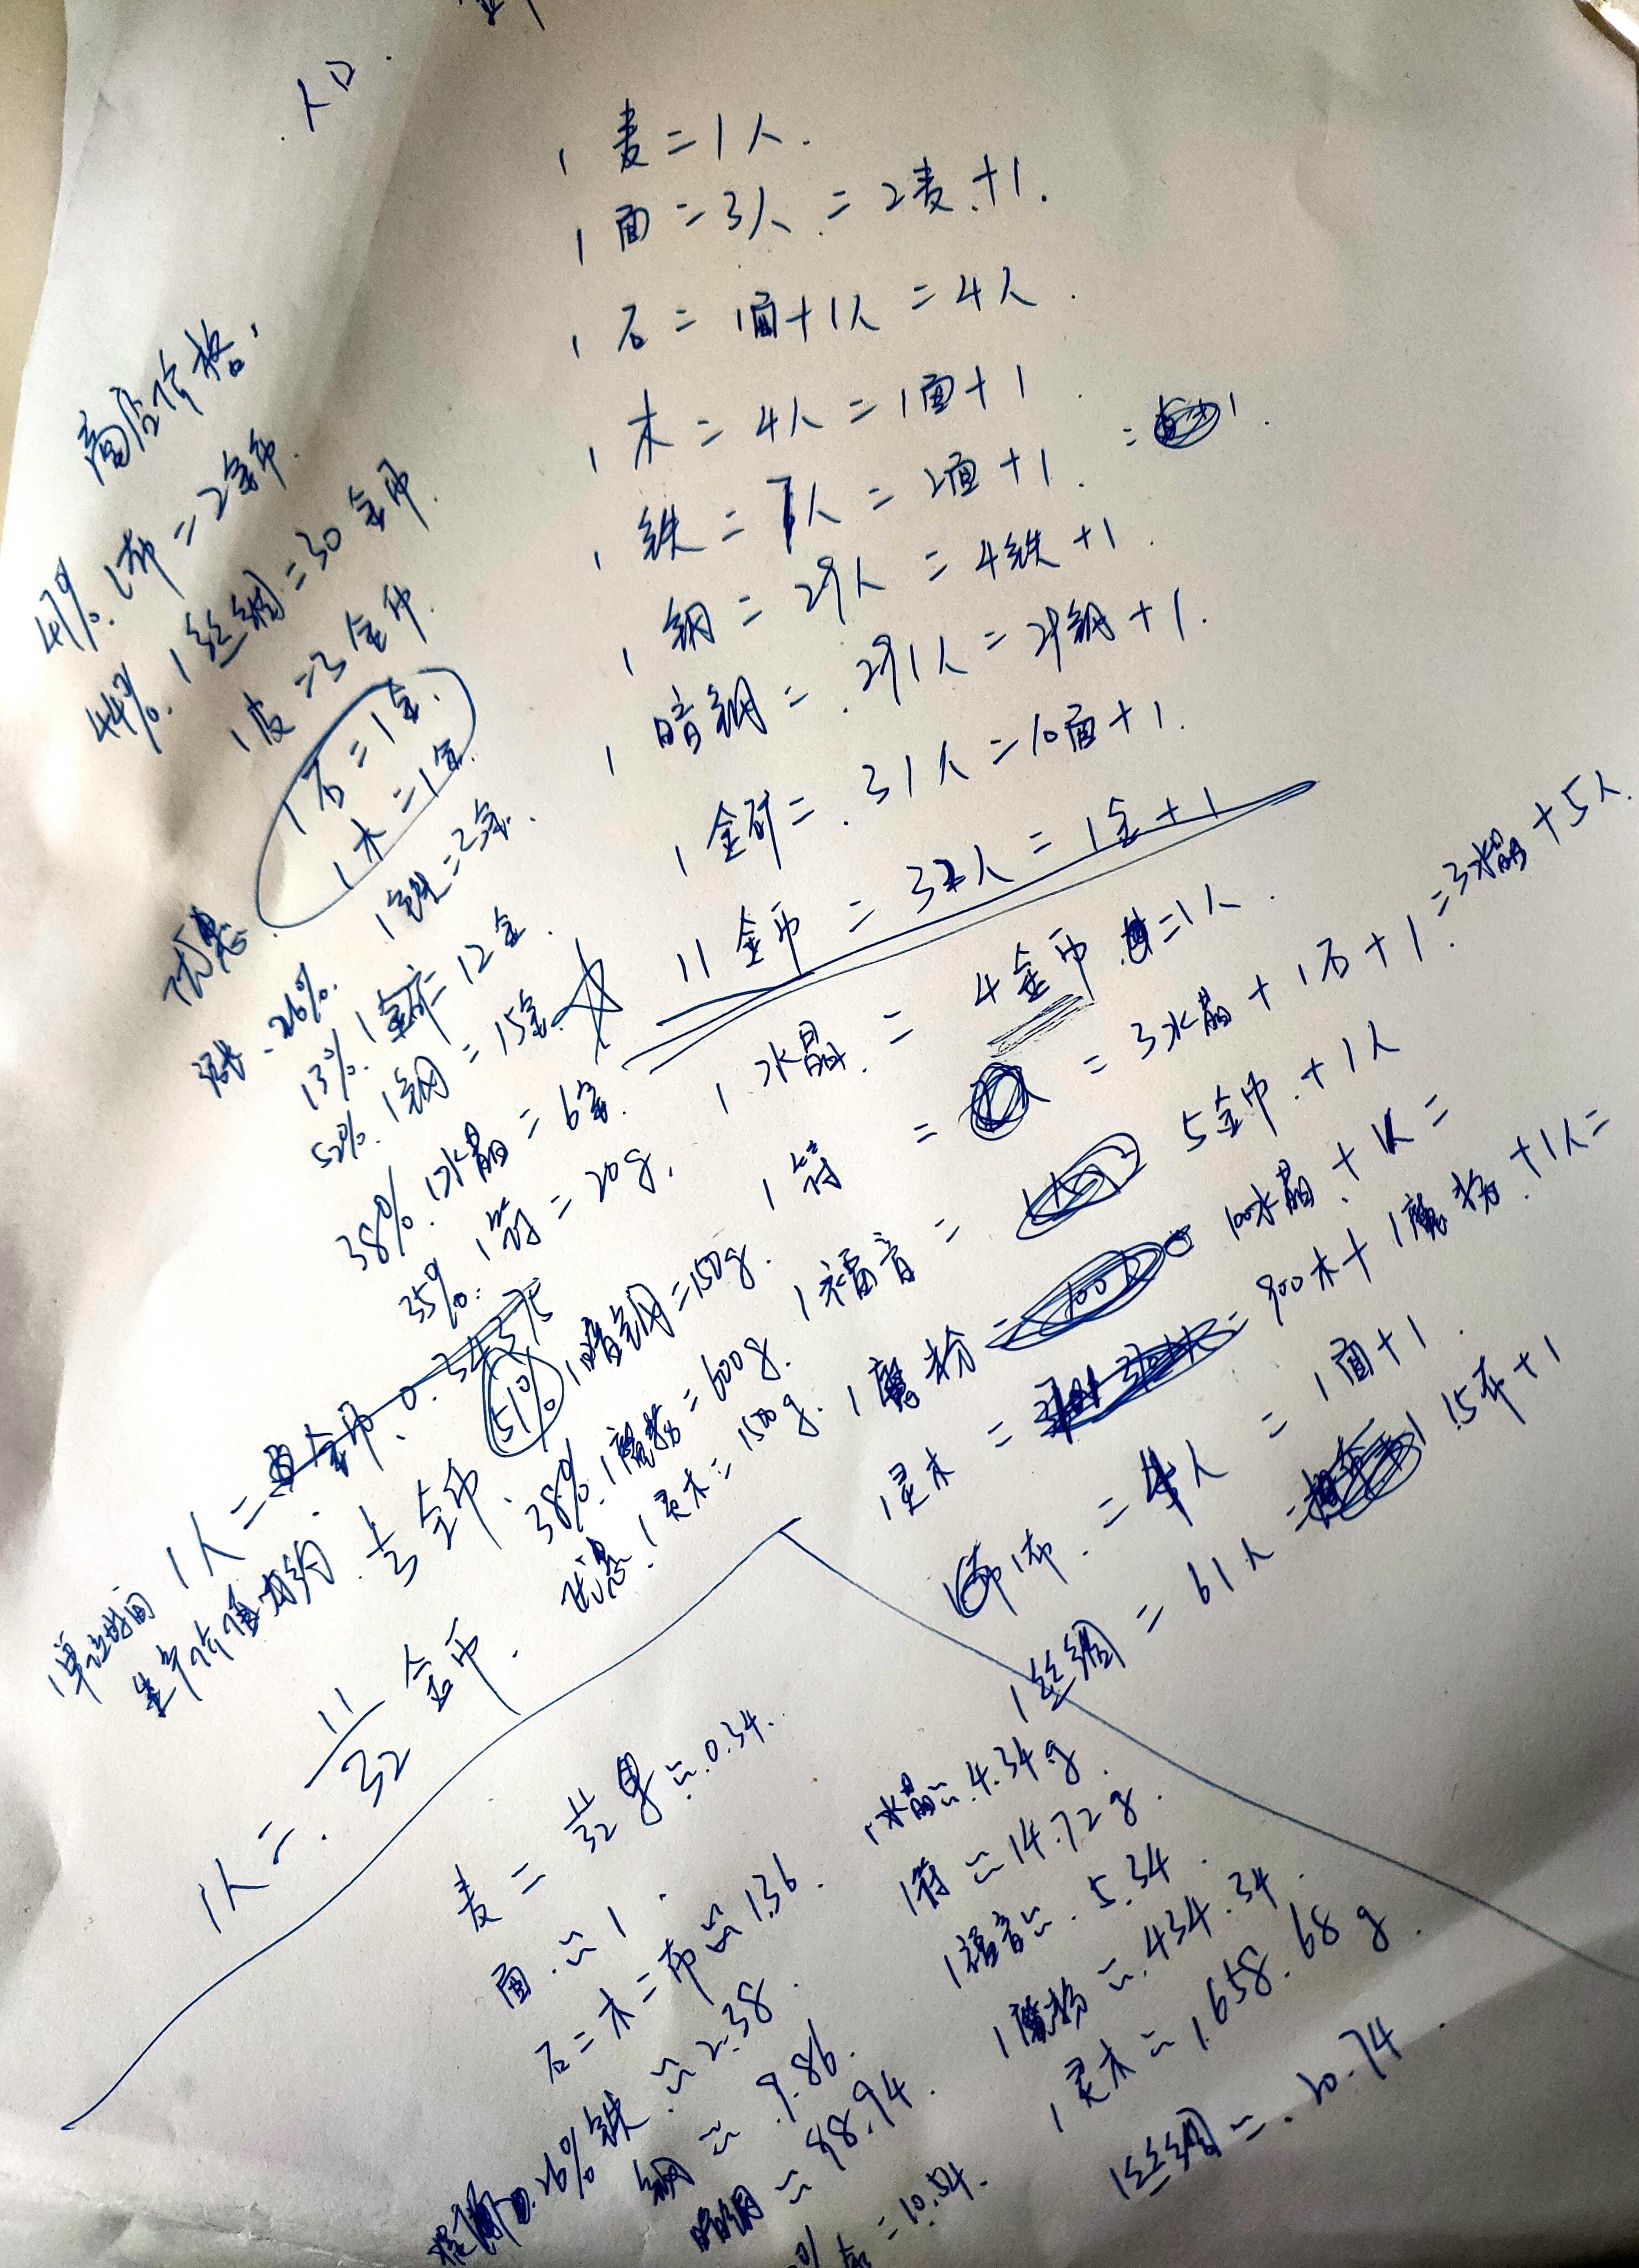 人口.
1麦=1人.
1面=3人=2麦+1.
1石=1面+1人=4人.
1木=4人=1面+1
1铁=7人=2面+1.
1钢=29人=4铁+1.
1暗钢=291人=29钢+1.
1金矿=31人=10面+1.
11金币=32人=1金+1
1水晶.=4金币+1人.
1符=3水晶+1石+1=3水晶+5人.
1福音=5金币+1人
1魔粉=100水晶+1人=
1灵木=900木+1魔粉+1人=
1布.=4人=1面+1.
1丝绸=61人=15布+1
商店价格,
47%.1布=2金币.
44%.1丝绸=30金币.
1皮=3金币.
1石=1金.
1木=1金.
优惠
1铁=3金.
涨.26%.
13%.1金矿=12金.
52%.1钢=15金
38%.1水晶=6金.
35%.1符=20g.
51%1暗钢=150g.
38%.1魔粉=600g.
优惠.1灵木=1500g.
1单位时间1人=
生产价值大约.⅓金币.
1人=.11/32金币.
麦=11/32≈0.34.
面.≈1.
石=木=布≈1.36.
26%铁≈2.38.
钢≈9.86.
暗钢≈98.94.
=10.54.
1水晶≈4.34g.
1符≈14.72g.
1福音≈5.34.
1魔粉≈434.34.
1灵木≈1658.68g.
1丝绸=20.74.